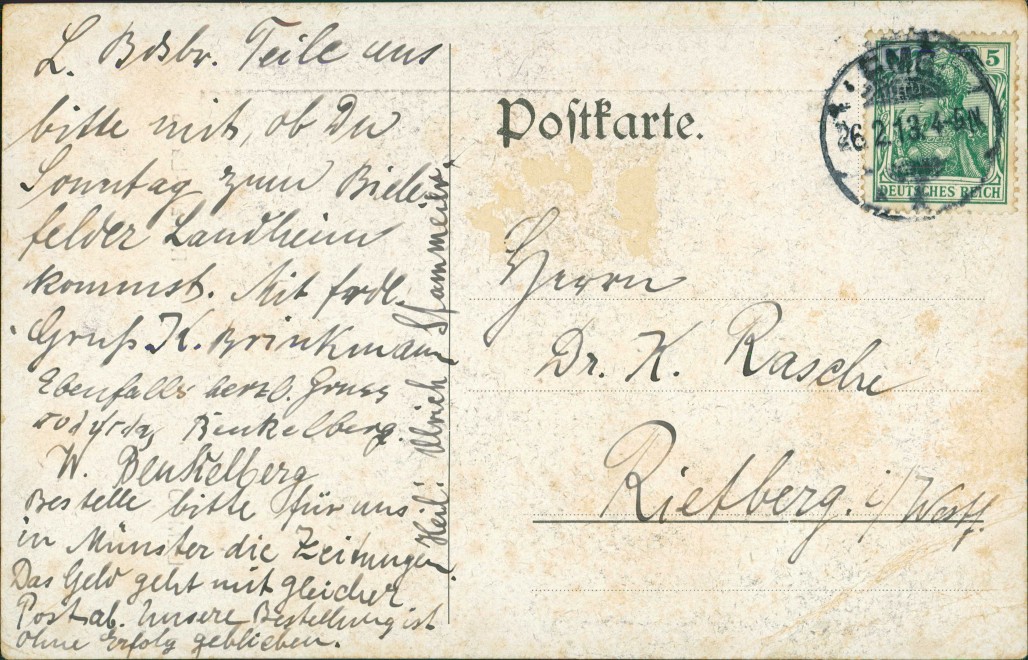 L. Bdsbr. Teile uns
bitte mit, ob Du
Sonntag zum Biele-
felder Landheim
kommst. Mit frdl.
Gruß K. Brinkmann
Ebenfalls herzl. Gruss
Benkelberg.
W. Benkelberg
Bestelle bitte für uns
in Münster die Zeitungen.
Das Geld geht mit gleicher
Post ab. Unsere Bestellung ist
ohne Erfolg geblieben.
Heil! Ulrich Stammeier
Postkarte.
26.2.13.4-5N
5
DEUTSCHES REICH
Herrn
Dr. K. Rasche
Rietberg. i/Westf.